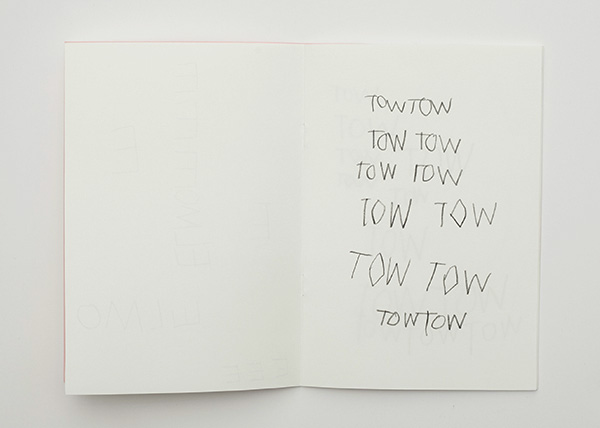 TOWTOW
TOW TOW
TOW TOW
TOW TOW
TOW TOW
TOWTOW